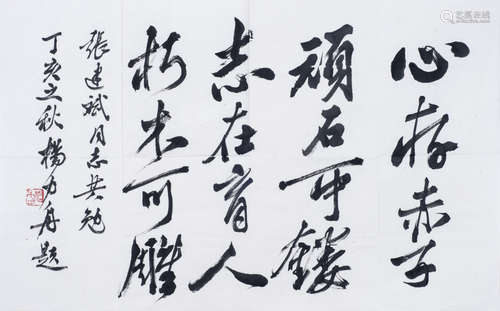 心存赤子
顽石可镂
志在育人
朽木可雕
張建斌同志共勉
丁亥之秋楊力舟題